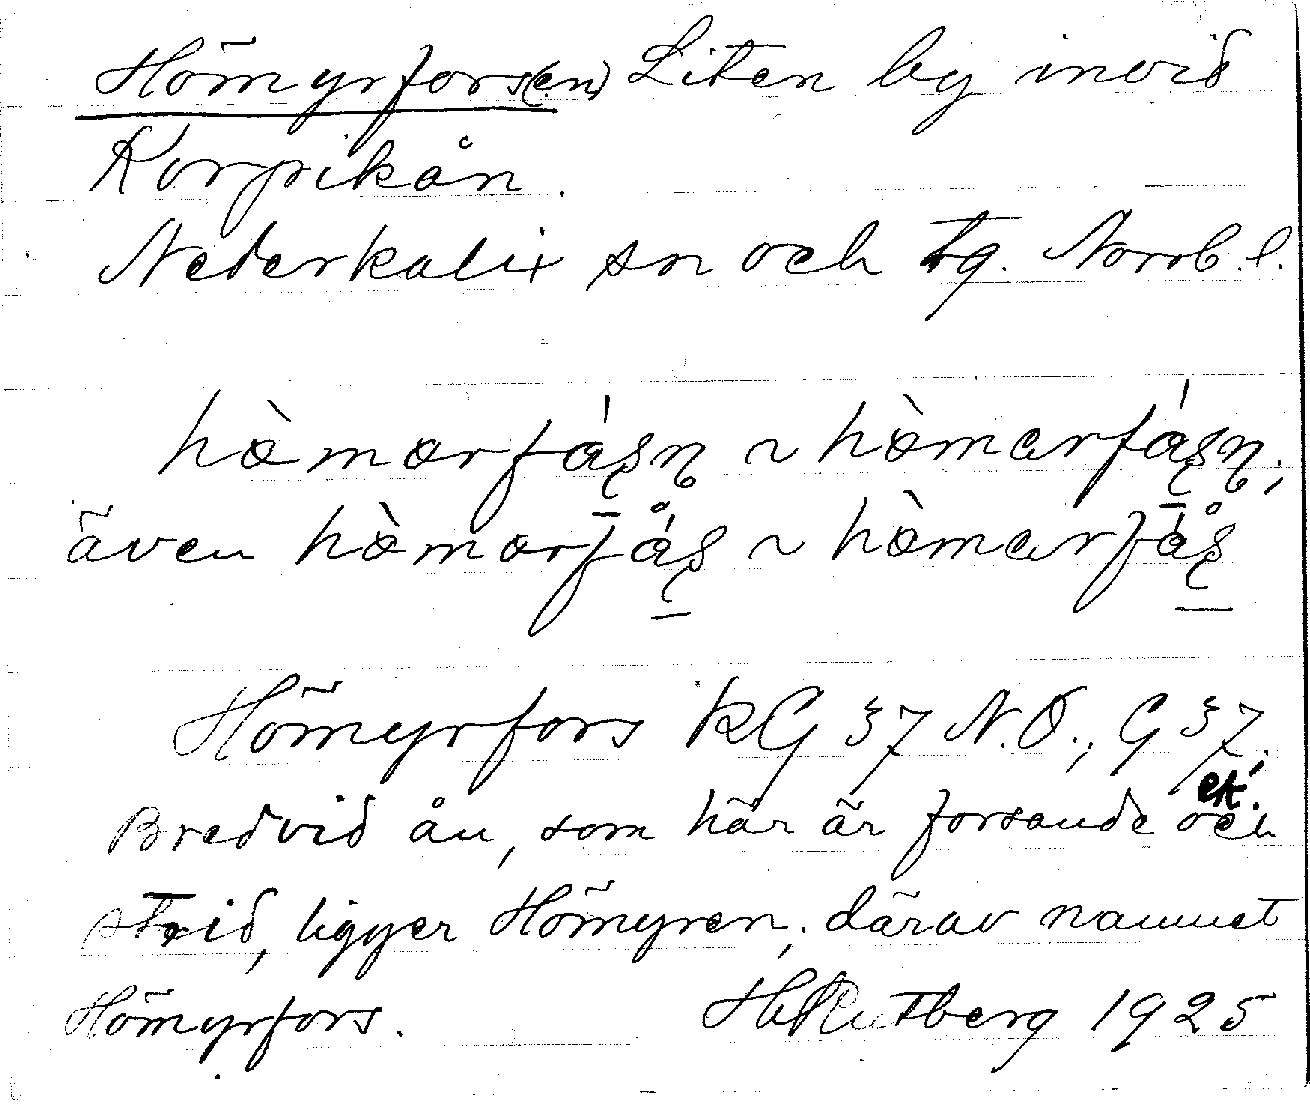 Hömyrfors(en) Liten by invid
Korpikån.
Nederkalix sn och tg. Norrb. l.
hœ̀mœrfáʂɳ ~ hœ̀marfáʂɳ;
även hœ̀mœrfǻʂ ~ hœ̀marfǻʂ
Hömyrfors KG 37 N.O., G 37,
ek.
Bredvid ån, som här är forsande och
strid, ligger Hömyren; därav namnet
Hömyrfors. Hl Rutberg 1925